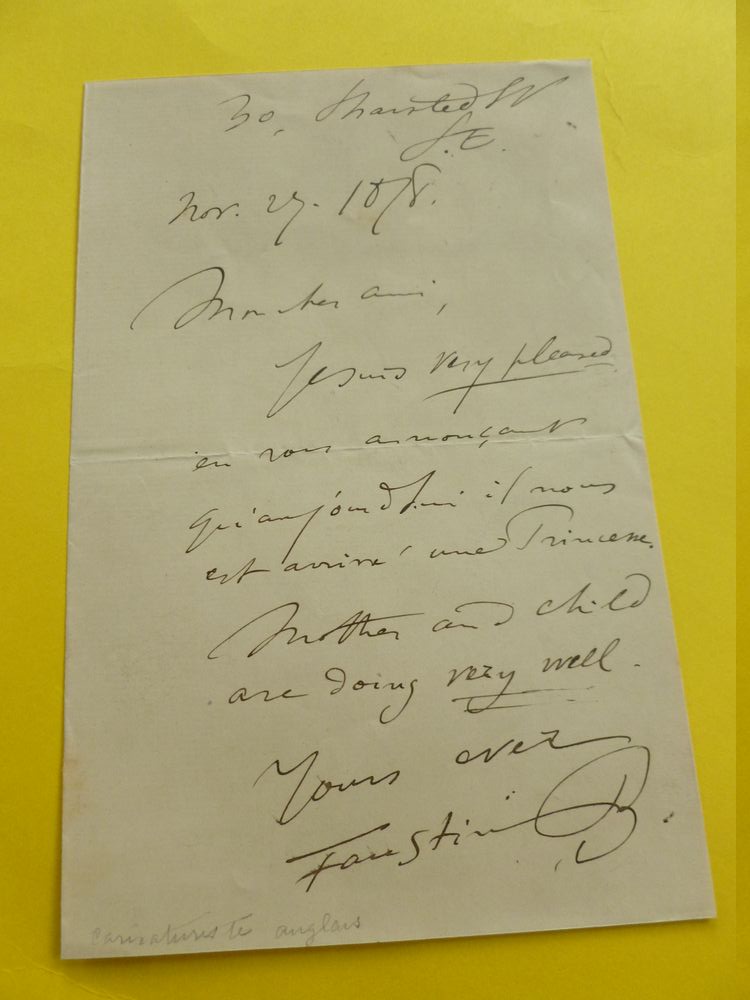 30,
S.E.
Nov. 27. 1878.
Mon cher ami,
Je suis very pleased
en vous annonçant
qu'aujourd'hui il nous
est arrivé une Princesse.
Mother and child
are doing very well.
Yours ever
Faustin B.
caricaturiste anglais